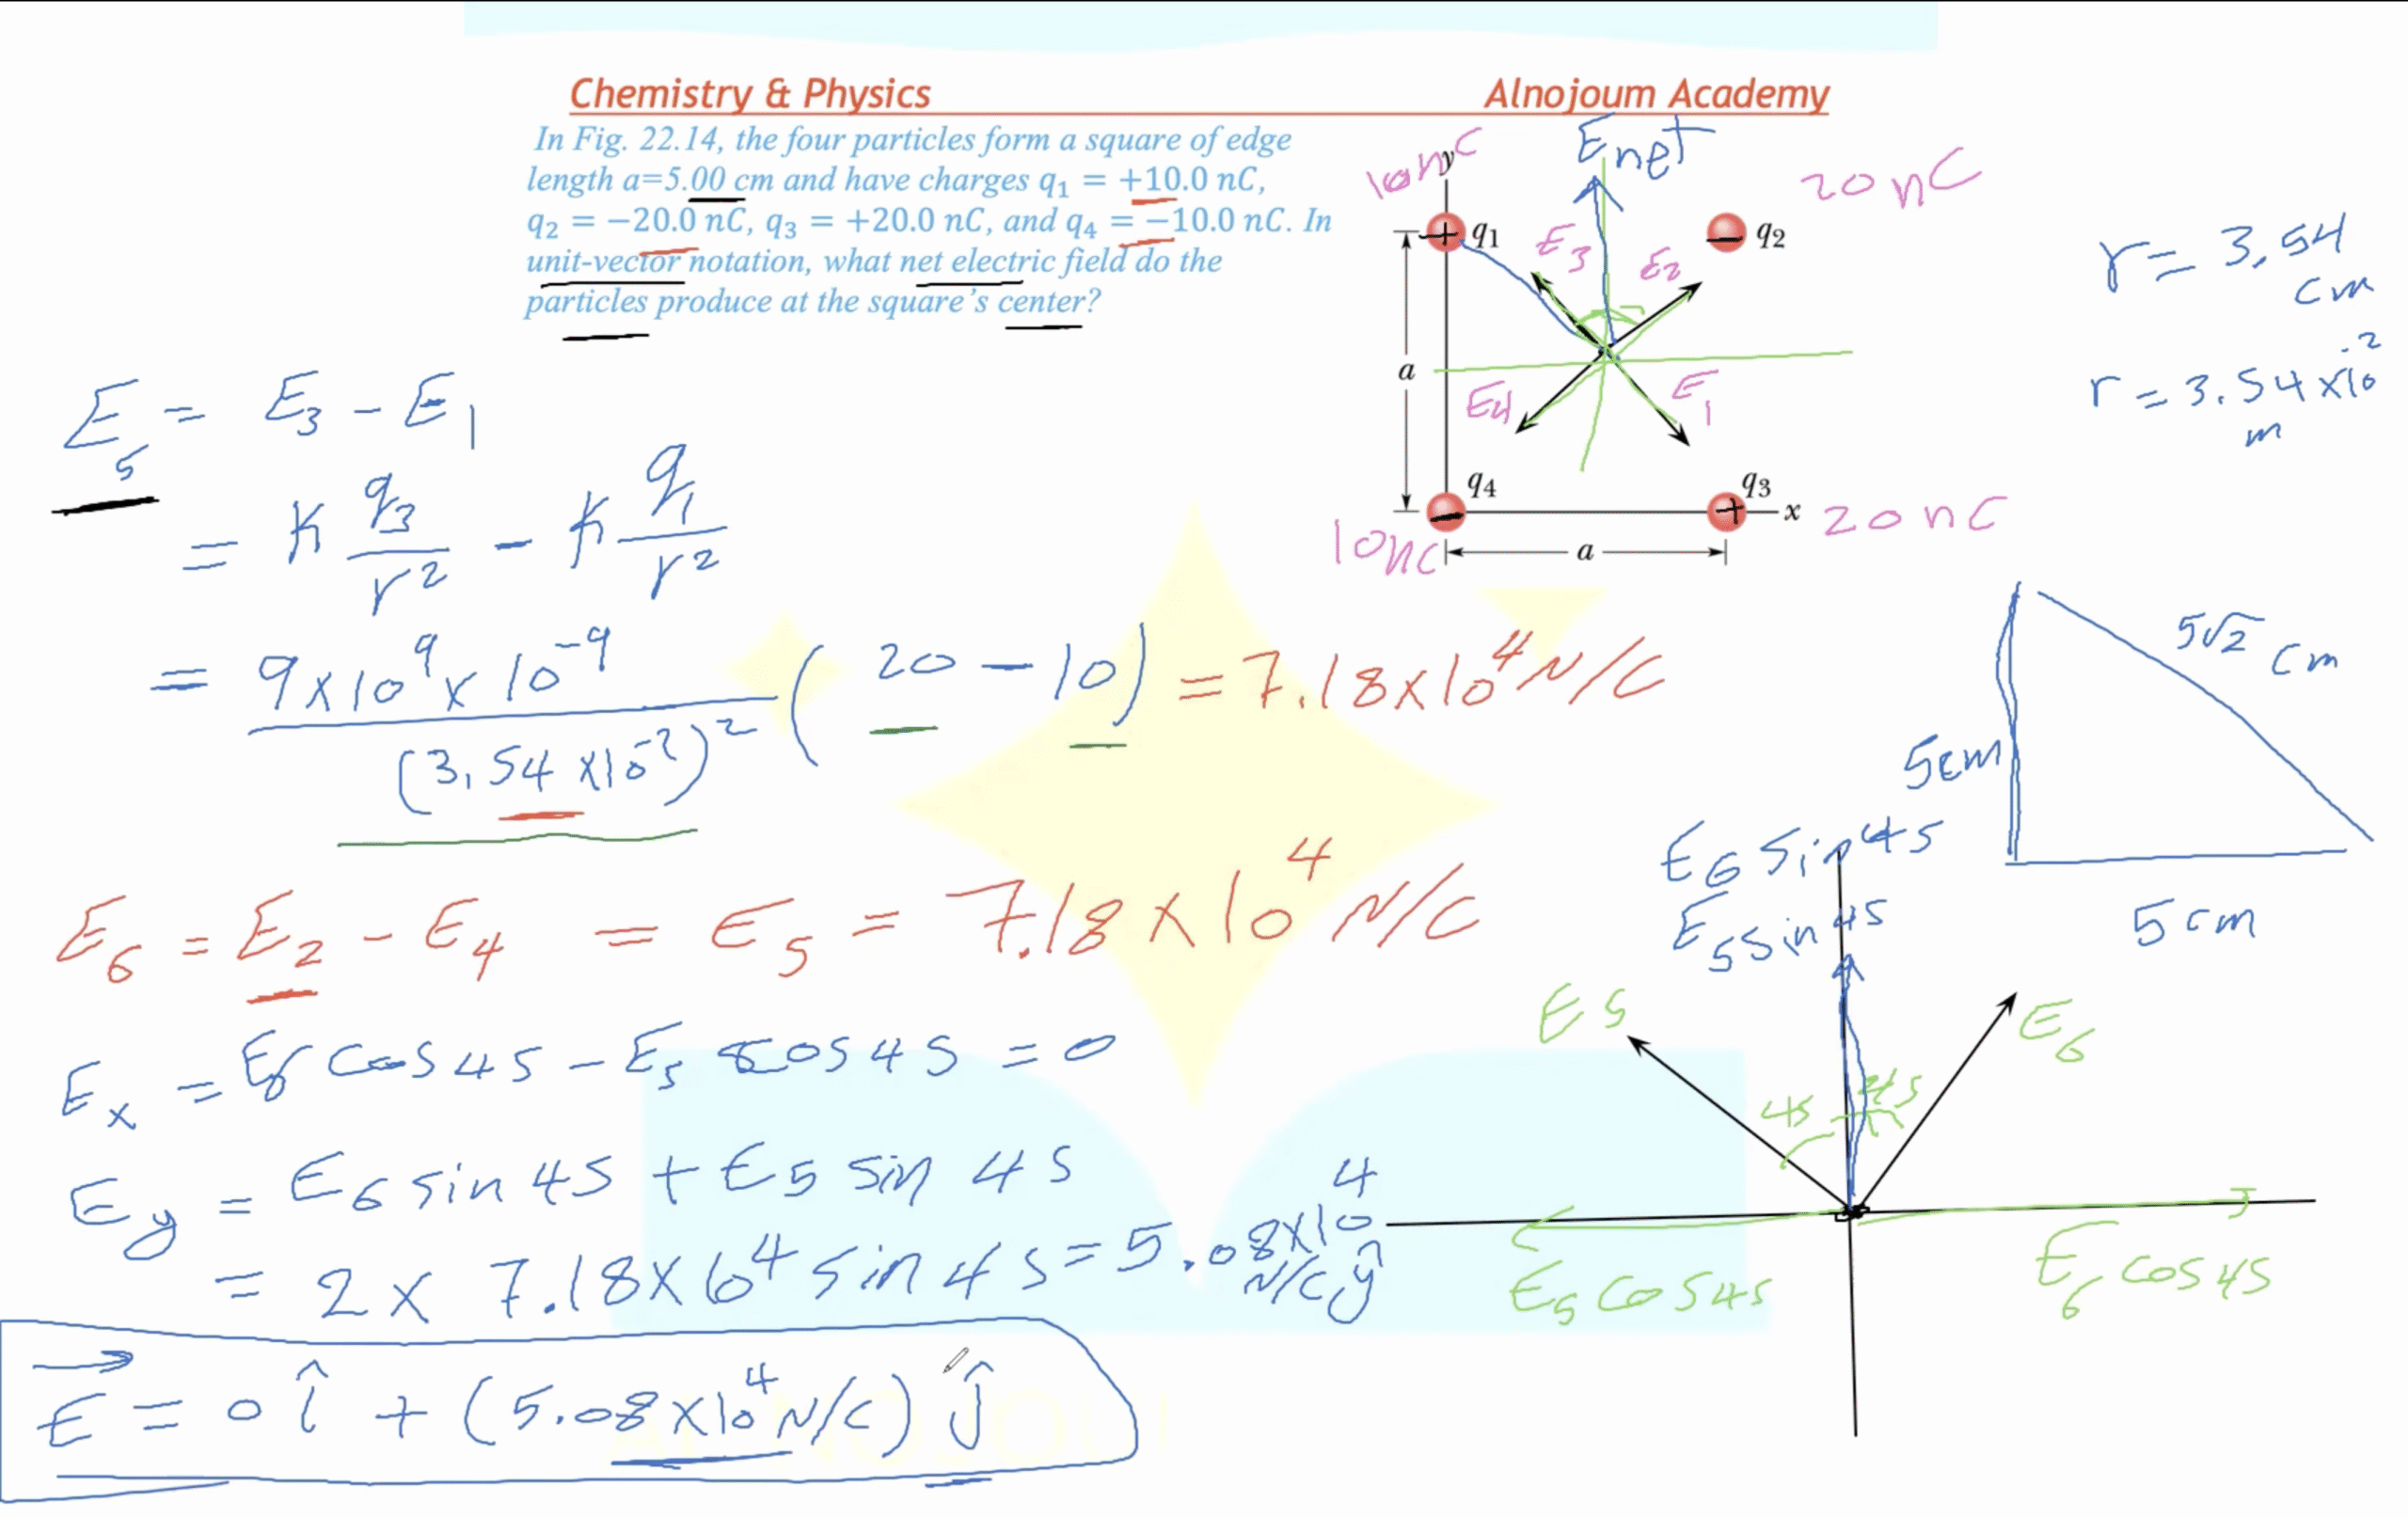 Chemistry & Physics
Alnojoum Academy
In Fig. 22.14, the four particles form a square of edge
length a=5.00 cm and have charges q₁ = +10.0 nC,
q₂ = −20.0 nC, q₃ = +20.0 nC, and q₄ = −10.0 nC. In
unit-vector notation, what net electric field do the
particles produce at the square's center?
10nC
y
Enet
20 nC
+ q₁
E₃
E₂
− q₂
a
E₄
E₁
− q₄
+ q₃
x
10nC
a
20nC
r = 3.54
cm
r = 3.54 x10⁻²
m
E₅ = E₃ − E₁
= K q₃/r² − K q₁/r²
= 9x10⁹ x 10⁻⁹/(3.54 x10⁻²)² (20 − 10) = 7.18x10⁴ N/C
5√2 cm
5cm
5cm
E₆ = E₂ − E₄ = E₅ = 7.18 x 10⁴ N/C
Eₓ = E₆ cos45 − E₅ cos45 = 0
Ey = E₆ sin 45 + E₅ sin 45
= 2 x 7.18x10⁴ sin 45 = 5.08x10⁴
N/C ŷ
E⃗ = 0 î + (5.08 x10⁴ N/C) ĵ
E₆ sin 45
E₅ sin 45
E5
E₆
45
45
E₅ cos45
E₆ cos45